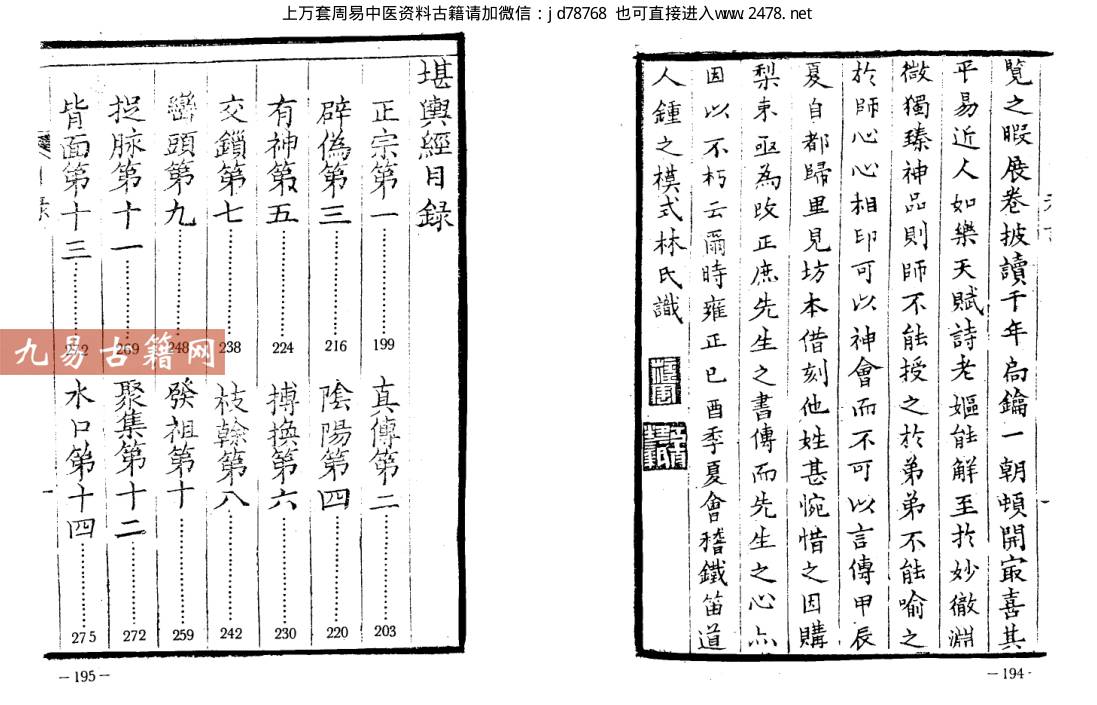 上万套周易中医资料古籍请加微信：jd78768 也可直接进入www.2478.net
覽之暇展卷披讀千年扃鑰一朝頓開㝡喜其
平易近人如樂天賦詩老嫗能解至於妙徹淵
微獨臻神品則師不能授之於弟弟不能喻之
於師心心相印可以神會而不可以言傳甲辰
夏自都歸里見坊本借刻他姓甚惋惜之因購
梨棗亟為改正庶先生之書傳而先生之心亦
因以不朽云爾時雍正己酉季夏會稽鐵笛道
人鍾之模式林氏識
—194-
堪輿經目録
正宗第一 199 真傳第二 203
辟偽第三 216 陰陽第四 220
有神第五 224 搏換第六 230
交鎖第七 238 枝幹第八 242
巒頭第九 248 發祖第十 259
捉脉第十一 269 聚集第十二 272
背面第十三 水口第十四 275
—195—
九易古籍网